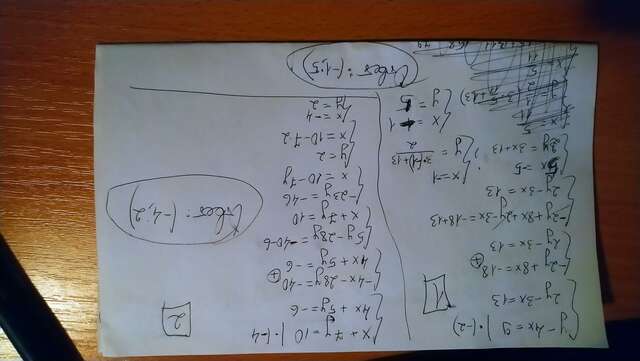 1
y - 4x = 9 | · (-2)
2y - 3x = 13
-2y + 8x = -18 ⊕
2y - 3x = 13
-2y + 8x + 2y - 3x = -18 + 13
2y - 3x = 13
5x = -5
2y = 3x + 13
x = -1
y = 3·(-1)+13 / 2
x = -1
y = 5
Ответ: (-1; 5)
2
x + 7y = 10 | · (-4
4x + 5y = -6
-4x - 28y = -40 ⊕
4x + 5y = -6
5y - 28y = -40 - 6
x + 7y = 10
-23y = -46
x = 10 - 7y
y = 2
x = 10 - 7·2
x = -4
y = 2
Ответ: (-4; 2)